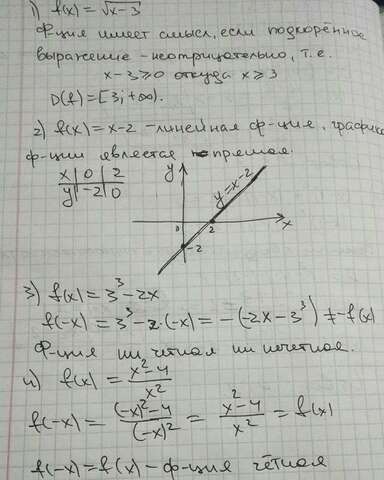 1) f(x) = √x-3
Ф-ция имеет смысл, если подкоренное
выражение - неотрицательно, т.е.
x-3≥0 откуда x≥3
D(f)=[3;+∞).
2) f(x)=x-2 - линейная ф-ция, график
ф-ции является прямая.
x | 0 | 2
y | -2 | 0
y
y=x-2
0 2 x
-2
3) f(x)=3³-2x
f(-x)=3³-2·(-x)=-(-2x-3³)≠-f(x)
Ф-ция ни чётная ни нечетная.
4) f(x)=x²-4/x²
f(-x)=(-x)²-4/(-x)²=x²-4/x²=f(x)
f(-x)=f(x) - ф-ция чётная